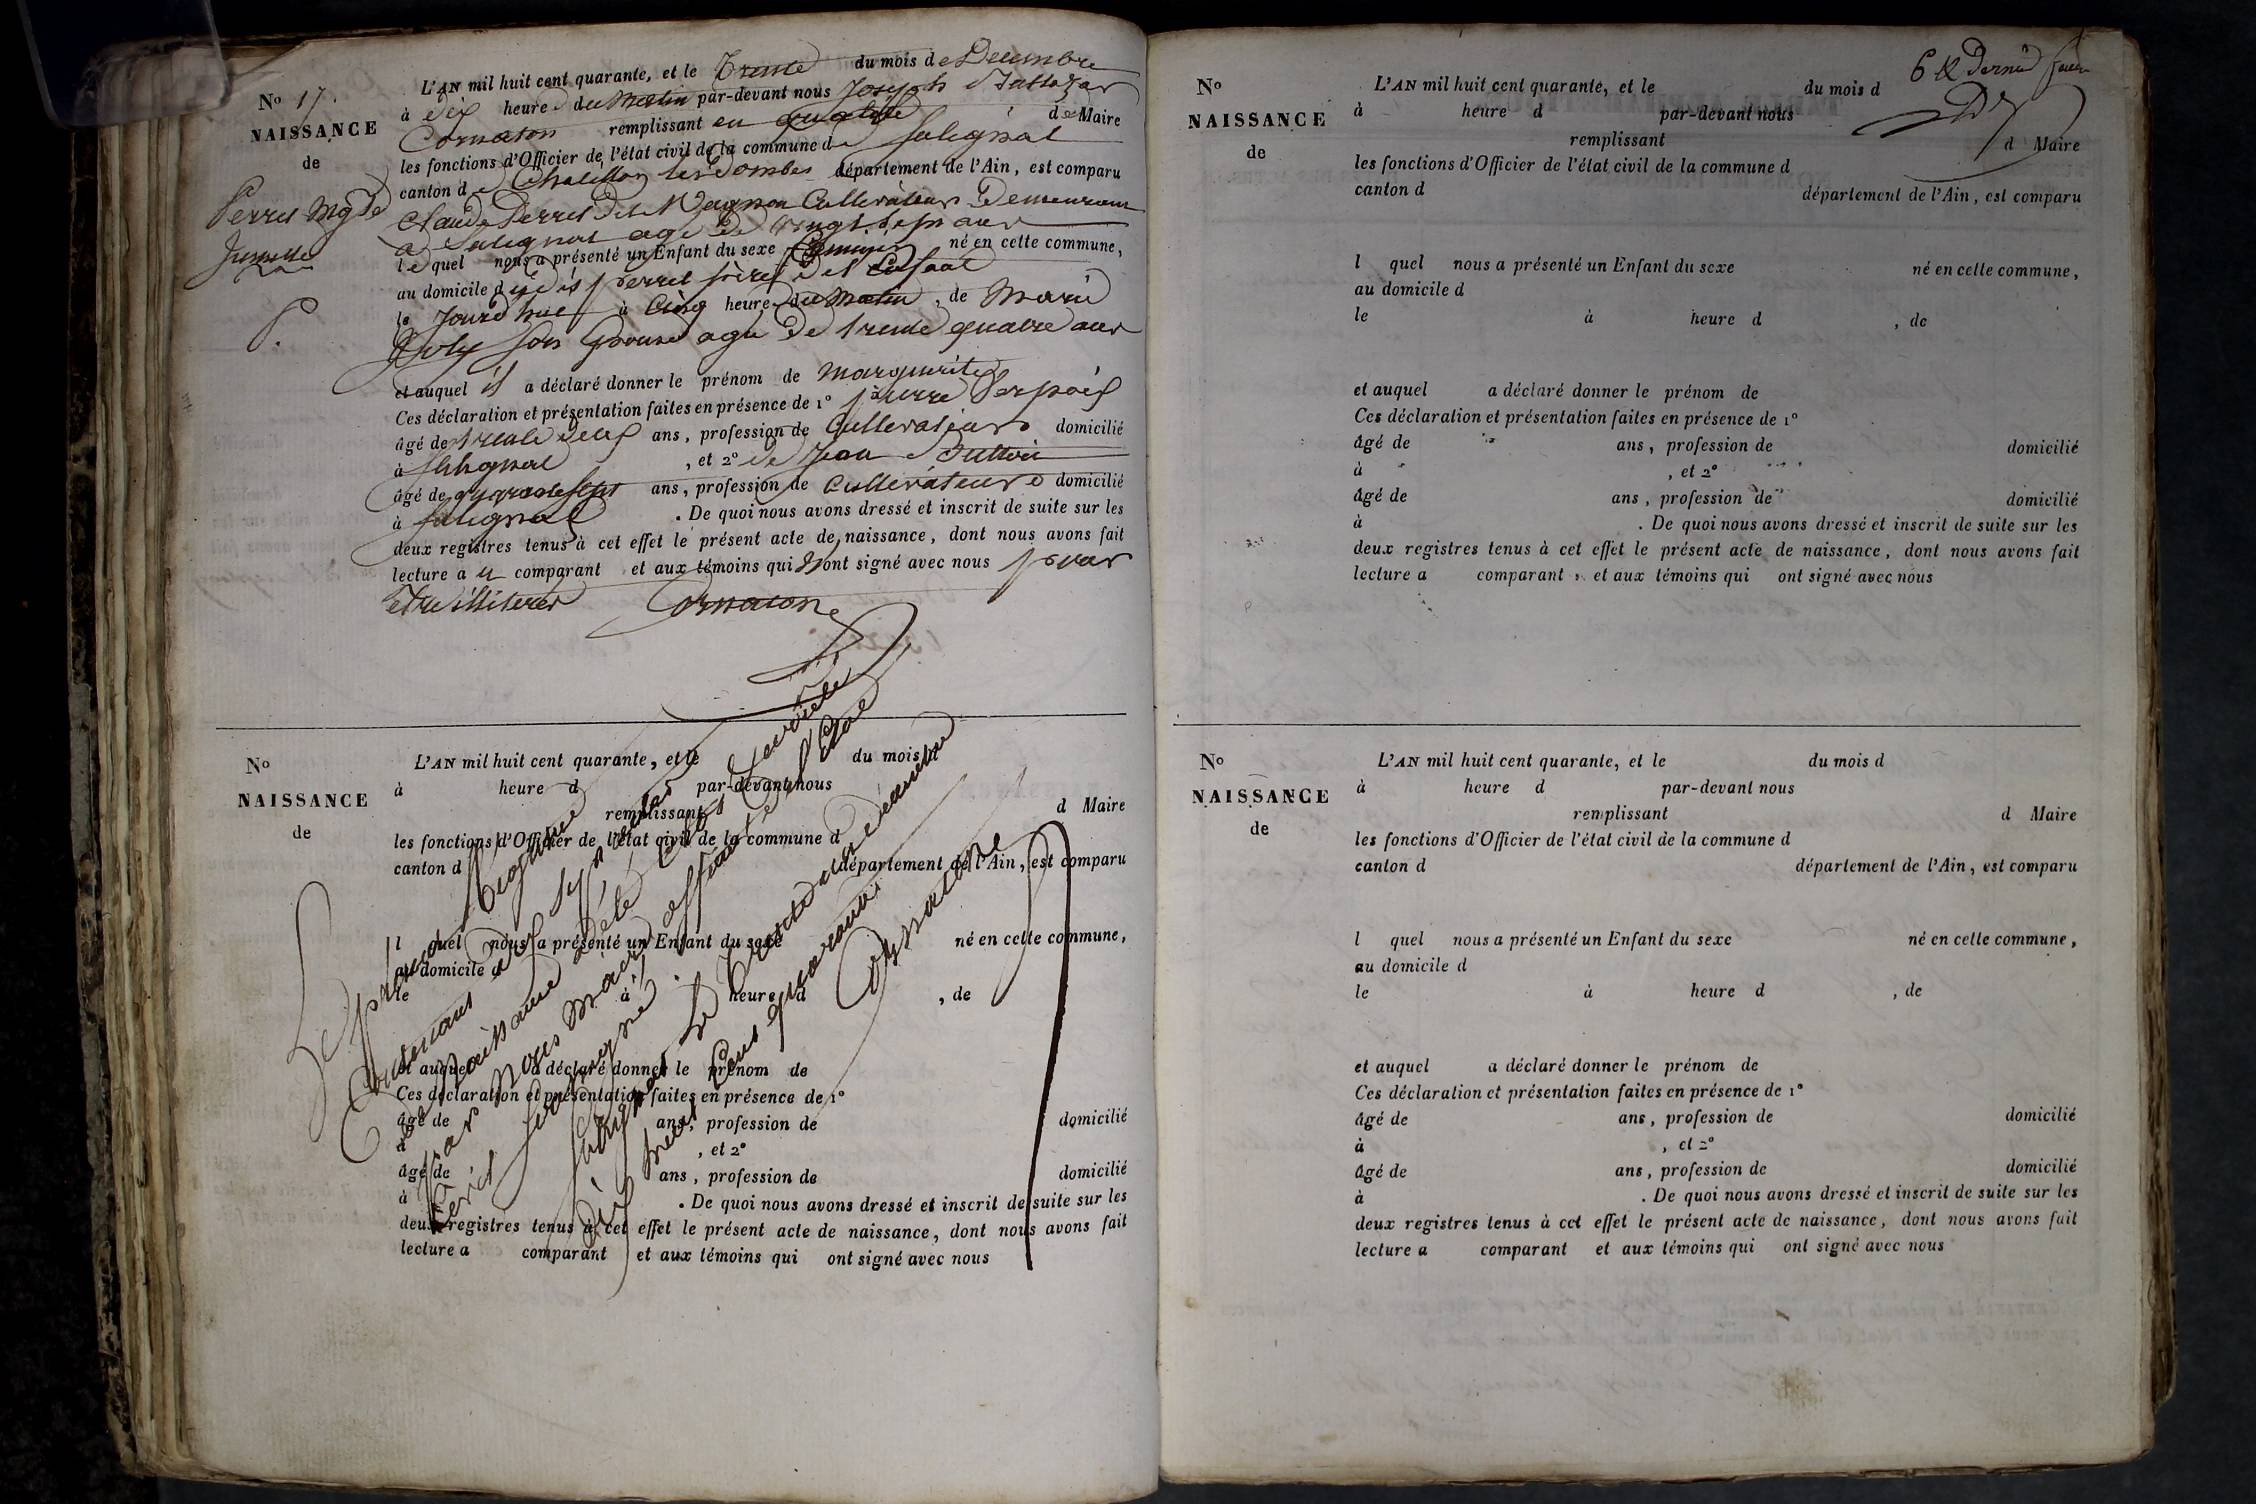 No 17.
NAISSANCE
de
Perret Mgte
Jumelle
P.
L'AN mil huit cent quarante, et le Trente du mois de Decembre
à dix heures du Matin par-devant nous Joseph Baltazar
Cornaton remplissant en qualité de Maire
les fonctions d'Officier de l'état civil de la commune de Salignat
canton de Chatillon les Dombes département de l'Ain, est comparu
Claude Perret dit Vagnon Cultivateur Demeurant
a Salignat agé de vingt sept ans
lequel nous a présenté un Enfant du sexe feminin né en cette commune,
au domicile du dis perret pere de l'Enfant
le Jourd'hui à Cinq heures du Matin, de Marie
Joly son Epouse agée de trente quatre ans
et auquel il a déclaré donner le prénom de marguerite
Ces déclaration et présentation faites en présence de 1º pierre
âgé de trente ans, profession de Cultivateur domicilié
à Salignat, et 2º de Jean
âgé de quarante sept ans, profession de Cultivateur domicilié
à Salignat. De quoi nous avons dressé et inscrit de suite sur les
deux registres tenus à cet effet le présent acte de naissance, dont nous avons fait
lecture au comparant et aux témoins qui n'ont signé avec nous pour
etre illiterés Cornaton
No
NAISSANCE
de
L'AN mil huit cent quarante, et le du mois d
à heure d par-devant nous
remplissant d Maire
les fonctions d'Officier de l'état civil de la commune d
canton d département de l'Ain, est comparu
l quel nous a présenté un Enfant du sexe né en cette commune,
au domicile d
le à heure d , de
et auquel a déclaré donner le prénom de
Ces déclaration et présentation faites en présence de 1º
âgé de ans, profession de domicilié
à , et 2º
âgé de ans, profession de domicilié
à . De quoi nous avons dressé et inscrit de suite sur les
deux registres tenus à cet effet le présent acte de naissance, dont nous avons fait
lecture a comparant et aux témoins qui ont signé avec nous
Le présent Registre
Contenant dix sept actes
de Naissance a été Clos
par Nous Maire officier de l'Etat
Civil soussigné
Salignat le trente un décembre
mil huit Cent quarante
Cornaton
6e & Dernier feuillet
No
NAISSANCE
de
L'AN mil huit cent quarante, et le du mois d
à heure d par-devant nous
remplissant d Maire
les fonctions d'Officier de l'état civil de la commune d
canton d département de l'Ain, est comparu
l quel nous a présenté un Enfant du sexe né en cette commune,
au domicile d
le à heure d , de
et auquel a déclaré donner le prénom de
Ces déclaration et présentation faites en présence de 1º
âgé de ans, profession de domicilié
à , et 2º
âgé de ans, profession de domicilié
à . De quoi nous avons dressé et inscrit de suite sur les
deux registres tenus à cet effet le présent acte de naissance, dont nous avons fait
lecture a comparant et aux témoins qui ont signé avec nous
No
NAISSANCE
de
L'AN mil huit cent quarante, et le du mois d
à heure d par-devant nous
remplissant d Maire
les fonctions d'Officier de l'état civil de la commune d
canton d département de l'Ain, est comparu
l quel nous a présenté un Enfant du sexe né en cette commune,
au domicile d
le à heure d , de
et auquel a déclaré donner le prénom de
Ces déclaration et présentation faites en présence de 1º
âgé de ans, profession de domicilié
à , et 2º
âgé de ans, profession de domicilié
à . De quoi nous avons dressé et inscrit de suite sur les
deux registres tenus à cet effet le présent acte de naissance, dont nous avons fait
lecture a comparant et aux témoins qui ont signé avec nous